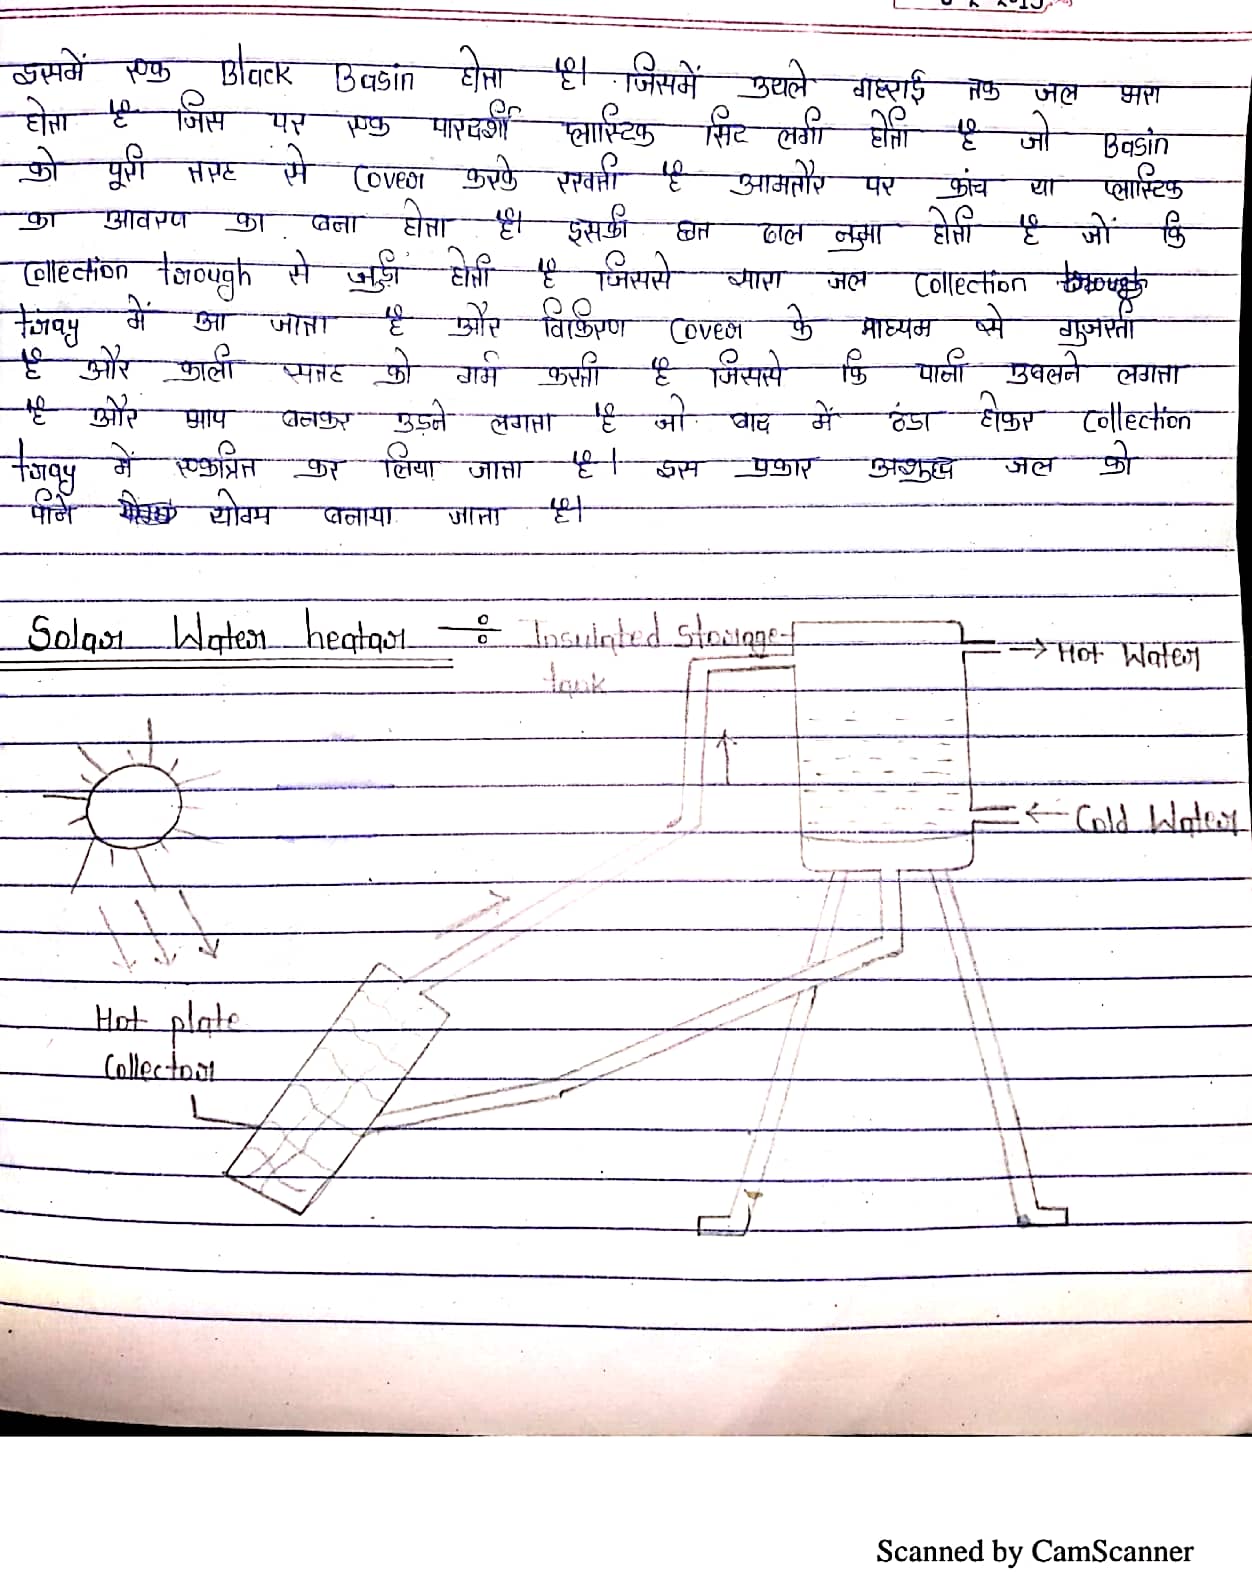 इसमें एक Black Basin होता है। जिसमें उथले गहराई तक जल भरा
होता है जिस पर एक पारदर्शी प्लास्टिक सिट लगी होती है जो Basin
को पूरी तरह से Cover करके रखती है आमतौर पर कांच या प्लास्टिक
का आवरण का बना होता है। इसकी छत ढाल नुमा होती है जों कि
Collection trough से जुड़ी होती है जिससे सारा जल Collection
tray में आ जाता है और विकिरण Cover के माध्यम से गुजरती
है और काली सतह को गर्म करती है जिससे कि पानी उबलने लगता
है और भाप बनकर उड़ने लगता है जो बाद में ठंडा होकर Collection
tray में एकत्रित कर लिया जाता है। इस प्रकार अशुद्ध जल को
पीने योग्य बनाया जाता है।
Solar Water heatar ÷ Insulated Storage
tank
→ Hot Water
← Cold Water
Hot plate
Collector
Scanned by CamScanner